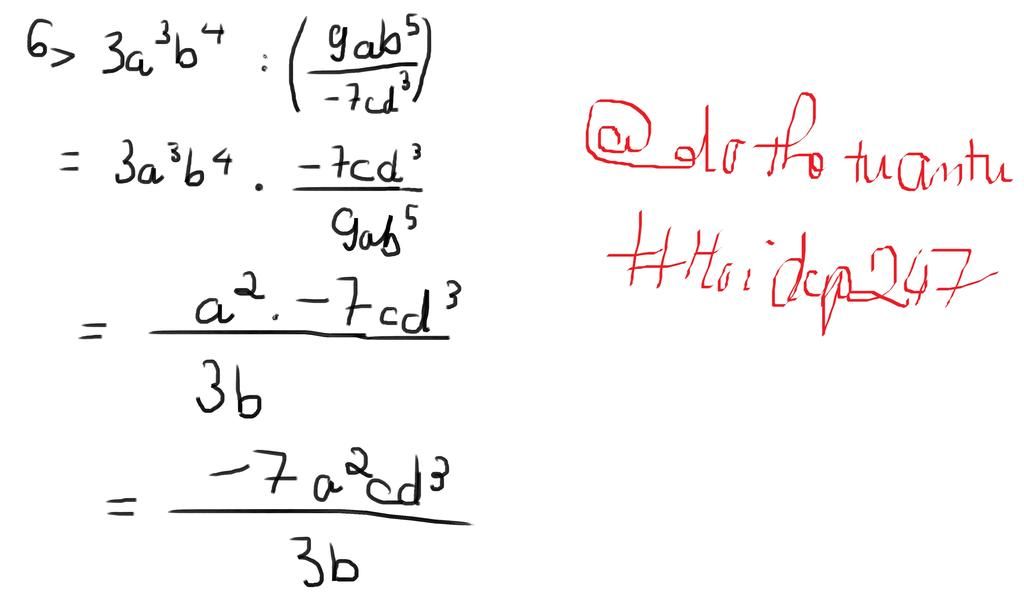 6> 3a³b⁴ : (9ab⁵ / -7cd³)
= 3a³b⁴ . -7cd³ / 9ab⁵
= a² . -7cd³ / 3b
= -7a²cd³ / 3b
@dothotuantu
#Hoidap247